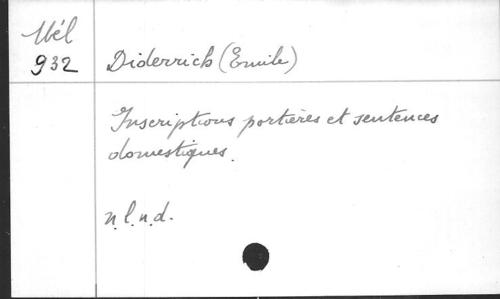 Mél
932
Diderrich (Emile)
Inscriptions portières et sentences
domestiques.
n.l.n.d.